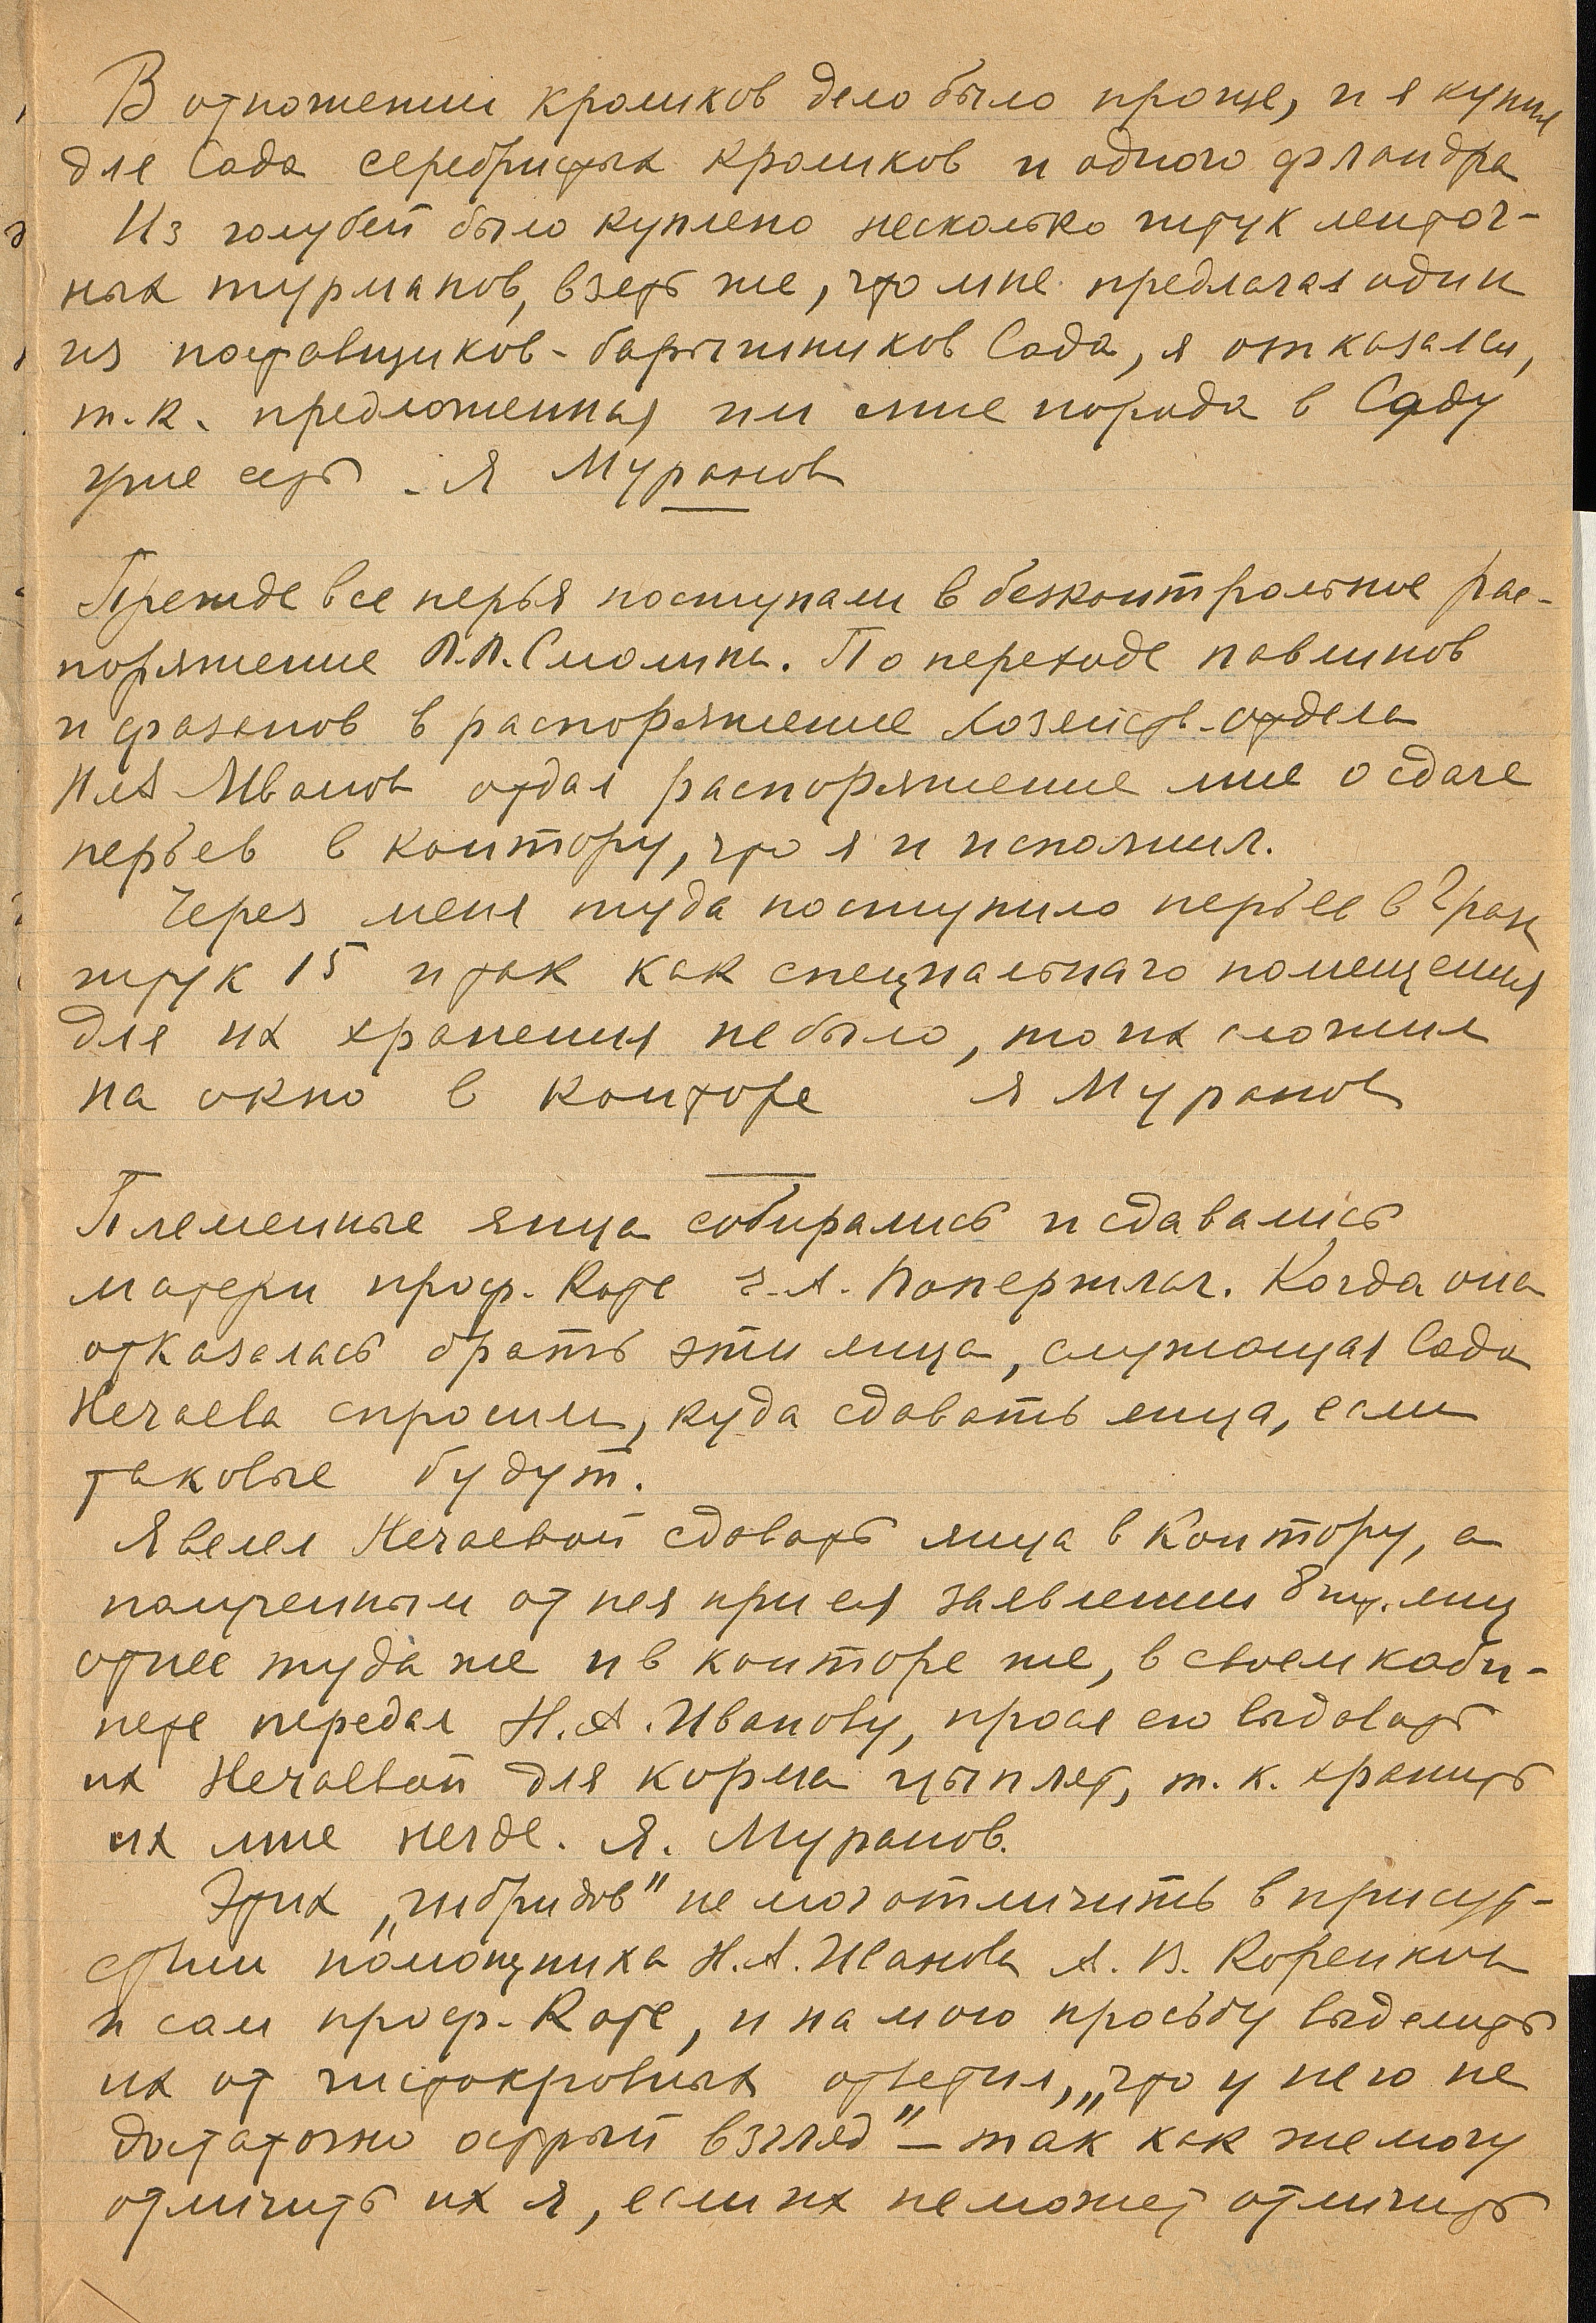 В отношении кроликов дело было проще, и я купил
для Сада серебристых кроликов и одного фландра
Из голубей было куплено несколько штук ленточ-
ных турманов, взять же, что мне предлагал один
из поставщиков-барышников Сада, я отказался,
т.к. предложенная им мне порода в Саду
уже есть - Я Муранов
Прежде все перья поступали в безконтрольное рас-
поряжение П.П. Смолина. По переходе павлинов
и фазанов в распоряжение Хозяйств. отдела
Иванов отдал распоряжение мне о сдаче
перьев в контору, что я и исполнил.
Через меня туда поступило перьев в 2 раза
штук 15 и так как специальнаго помещения
для их хранения не было, то их сложил
на окно в конторе я Муранов
Племенные яйца собирались и сдавались
матери проф. Котс Э.А. Попержлач. Когда она
отказалась брать эти яйца, служащая Сада
Нечаева спросила, куда сдавать яйца, если
таковые будут.
Я велел Нечаевой сдавать яйца в Контору, а
полученныи от нея при ея заявлении 8 шт. яиц
отнес туда же и в конторе же, в своем каби-
нете передал Н.А. Иванову, прося его выдавать
их Нечаевой для корма цыплят, т.к. хранить
их мне негде. Я. Муранов.
Этих „гибридов" не мог отличить в присут-
ствии помощника Н.А. Иванова А.В. Коренкова
и сам проф. Котс, и на мою просьбу выделить
их от чистокровных ответил, „что у него не
достаточно острый взгляд" – так как же могу
отличить их я, если их не может отличить